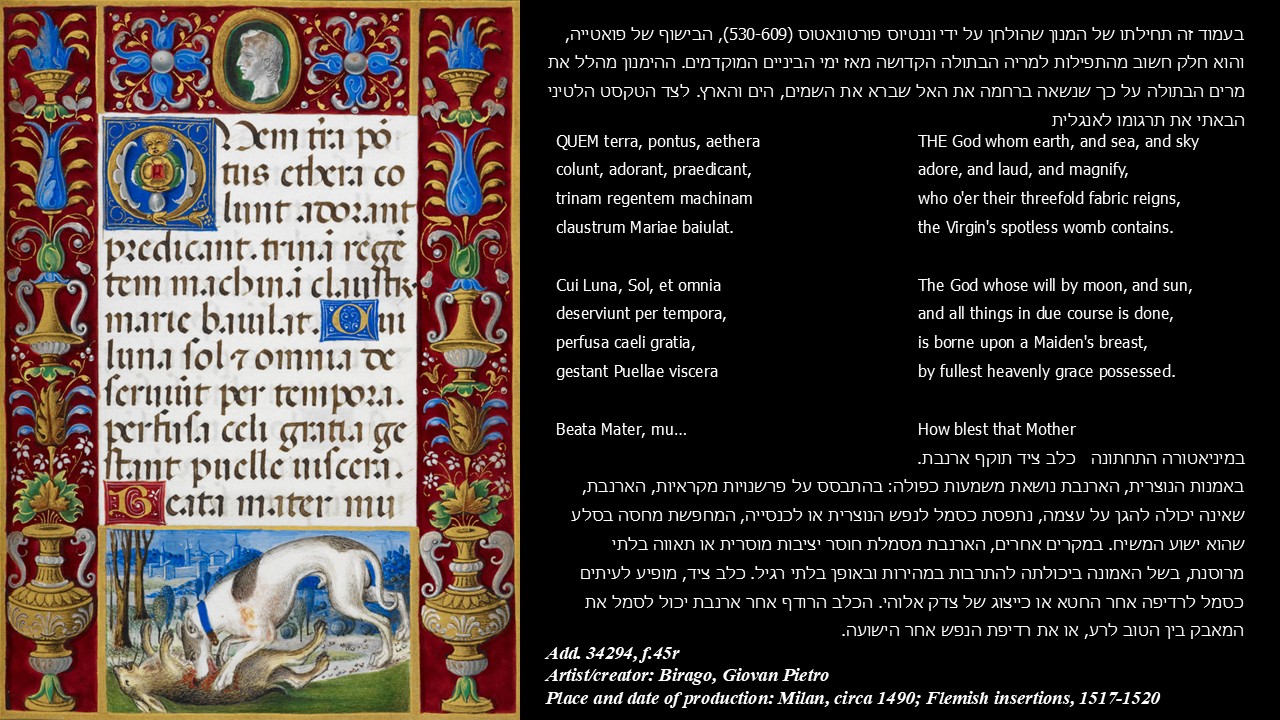 Quem t̄ra pō
tus ethera co
lunt adorant
predicant. trinā regē
tem machinā claustr
marie baiulat. Cui
luna sol ⁊ omnia de
seruiūt per tempora.
perfusa celi gratia ge
stant puelle uiscera.
Beata mater mu
בעמוד זה תחילתו של המנון שהולחן על ידי וננטיוס פורטונאטוס (530-609), הבישוף של פואטייה,
והוא חלק חשוב מהתפילות למריה הבתולה הקדושה מאז ימי הביניים המוקדמים. ההימנון מהלל את
מרים הבתולה על כך שנשאה ברחמה את האל שברא את השמים, הים והארץ. לצד הטקסט הלטיני
הבאתי את תרגומו לאנגלית
QUEM terra, pontus, aethera
colunt, adorant, praedicant,
trinam regentem machinam
claustrum Mariae baiulat.
Cui Luna, Sol, et omnia
deserviunt per tempora,
perfusa caeli gratia,
gestant Puellae viscera
Beata Mater, mu...
THE God whom earth, and sea, and sky
adore, and laud, and magnify,
who o'er their threefold fabric reigns,
the Virgin's spotless womb contains.
The God whose will by moon, and sun,
and all things in due course is done,
is borne upon a Maiden's breast,
by fullest heavenly grace possessed.
How blest that Mother
במיניאטורה התחתונה כלב ציד תוקף ארנבת.
באמנות הנוצרית, הארנבת נושאת משמעות כפולה: בהתבסס על פרשנויות מקראיות, הארנבת,
שאינה יכולה להגן על עצמה, נתפסת כסמל לנפש הנוצרית או לכנסייה, המחפשת מחסה בסלע
שהוא ישוע המשיח. במקרים אחרים, הארנבת מסמלת חוסר יציבות מוסרית או תאווה בלתי
מרוסנת, בשל האמונה ביכולתה להתרבות במהירות ובאופן בלתי רגיל. כלב ציד, מופיע לעיתים
כסמל לרדיפה אחר החטא או כייצוג של צדק אלוהי. הכלב הרודף אחר ארנבת יכול לסמל את
המאבק בין הטוב לרע, או את רדיפת הנפש אחר הישועה.
Add. 34294, f.45r
Artist/creator: Birago, Giovan Pietro
Place and date of production: Milan, circa 1490; Flemish insertions, 1517-1520